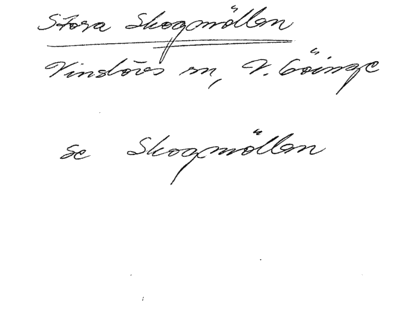 Stora Skogmöllan
Vinslövs sn, V. Göinge
se Skogmöllan